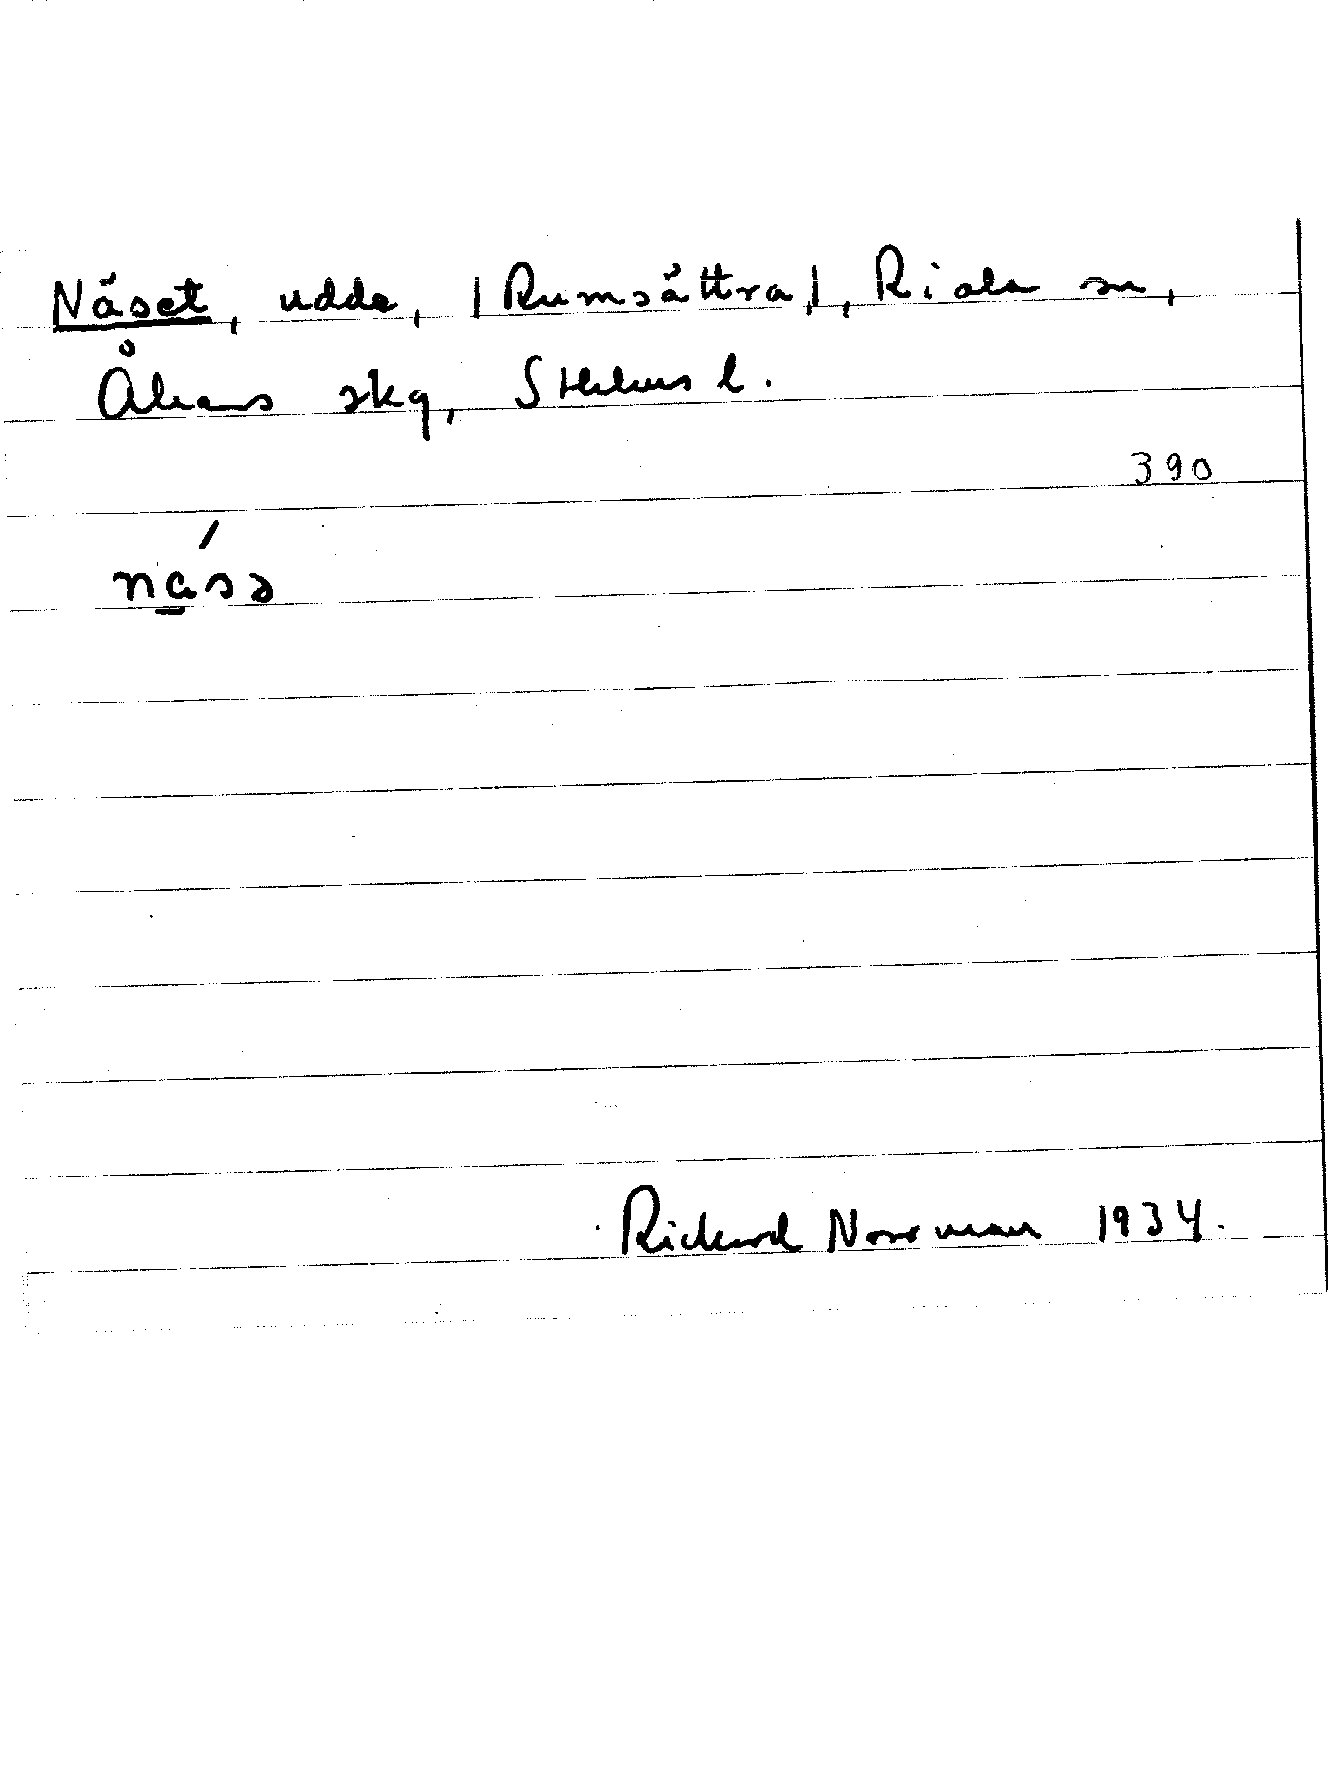 Näset, udde, |Rumsättra|, Riala sn,
Åkers skg, Sthlms l.
390
násə
Rickard Norrman 1934.